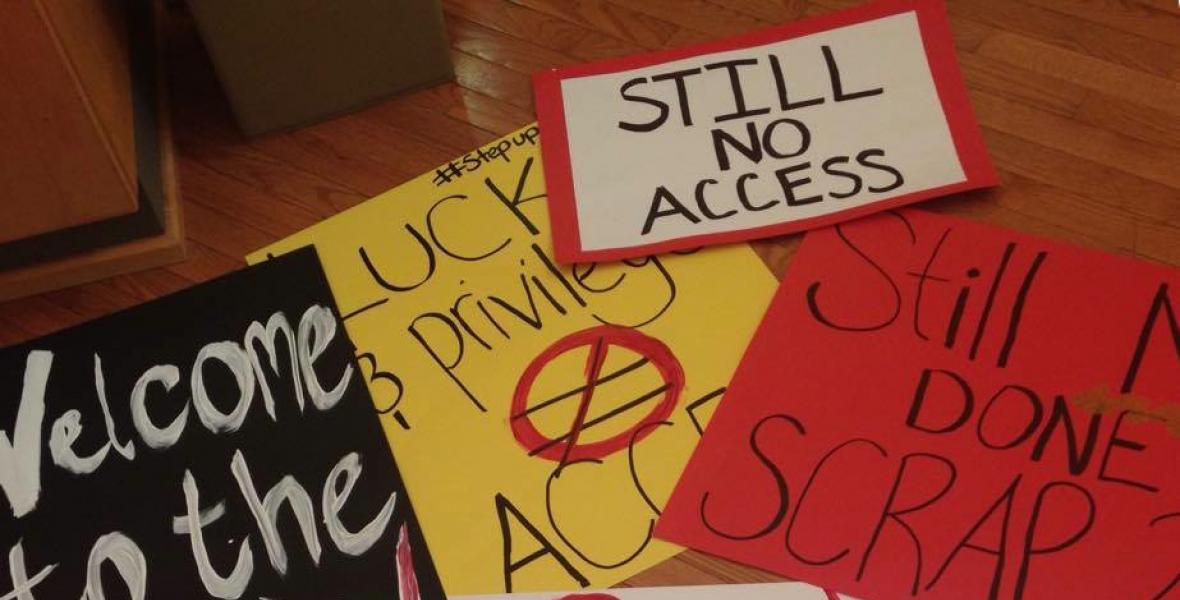 STILL
NO
ACCESS
#Stepup
LUCK
privilege
ACC
Welcome
to the
Still N
DONE
SCRAP